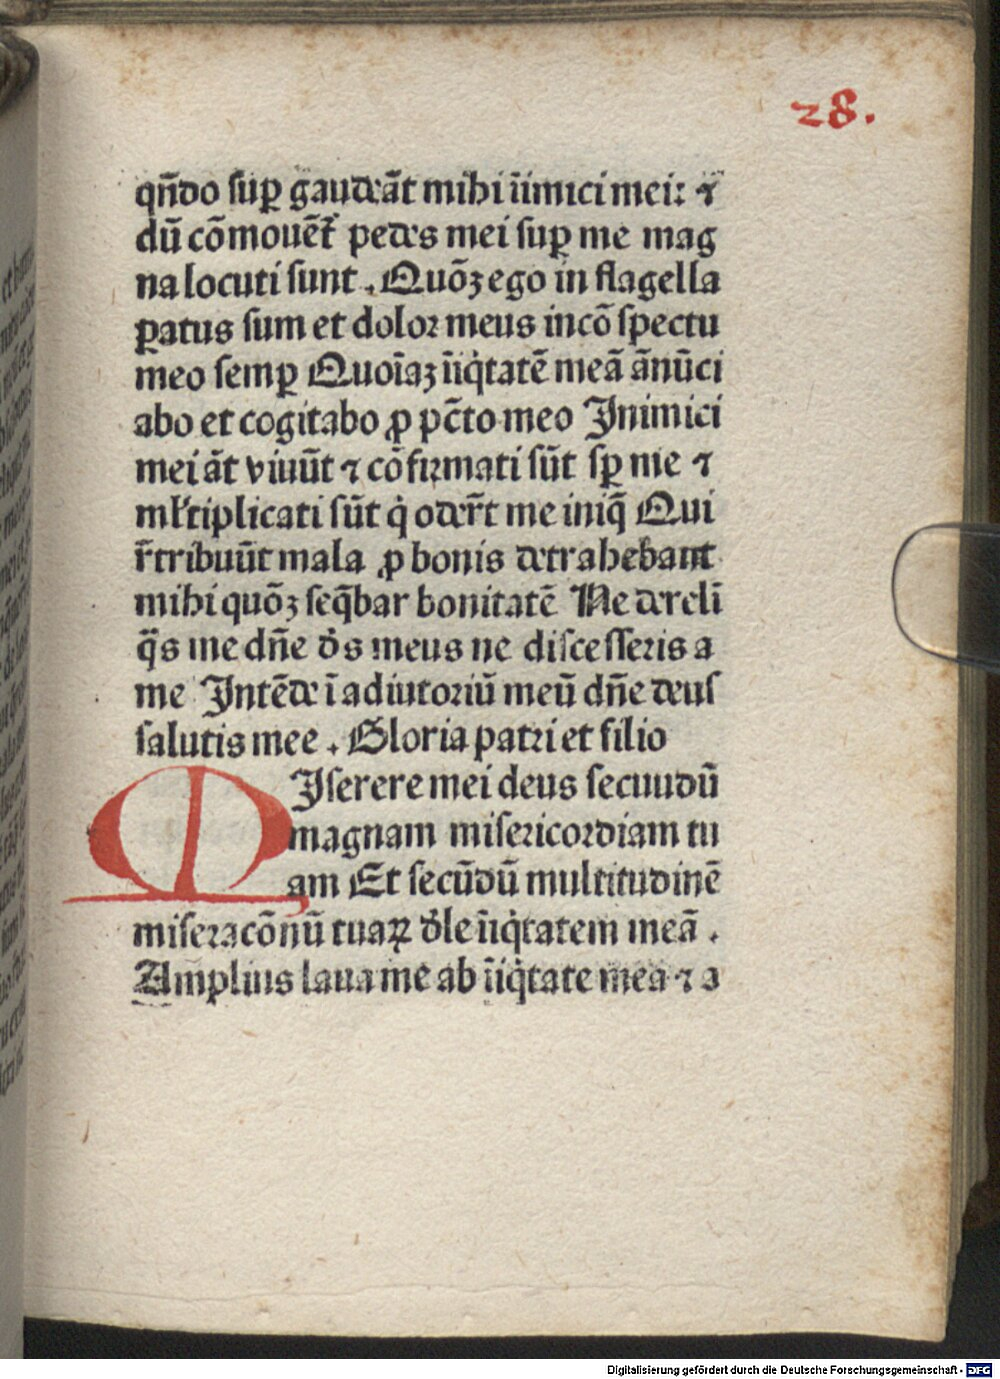 28.
qñdo suꝑ gaudeãt mihi iĩmici mei: ⁊
dũ cõmouẽt᷑ pedes mei suꝑ me mag
na locuti sunt . Quõꝫ ego in flagella
ꝑatus sum et dolor meus incõ spectu
meo semꝑ Quoĩaꝫ iĩq̇tatẽ meã ãnũci
abo et cogitabo ꝓ pc̃to meo Inimici
mei ãt viuũt ⁊ cõfirmati sũt sꝑ me ⁊
ml̃tiplicati sũt q̇ oder̃t me iniq̃ Qui
r̃tribuũt mala ꝓ bonis detrahebant
mihi quõꝫ seq̃bar bonitatẽ Ne dereli
q̃s me dñe d̃s meus ne discesseris a
me Intẽde ĩ adiutoriũ meũ dñe deus
salutis mee . Gloria patri et filio
MIserere mei deus secuudũ
magnam misericordiam tu
am Et secũdũ multitudinẽ
miseracõnũ tuaꝝ d̃le iĩq̇tatem meã .
Amplius laua me ab iĩq̇tate mea ⁊ a
Digitalisierung gefördert durch die Deutsche Forschungsgemeinschaft - DFG